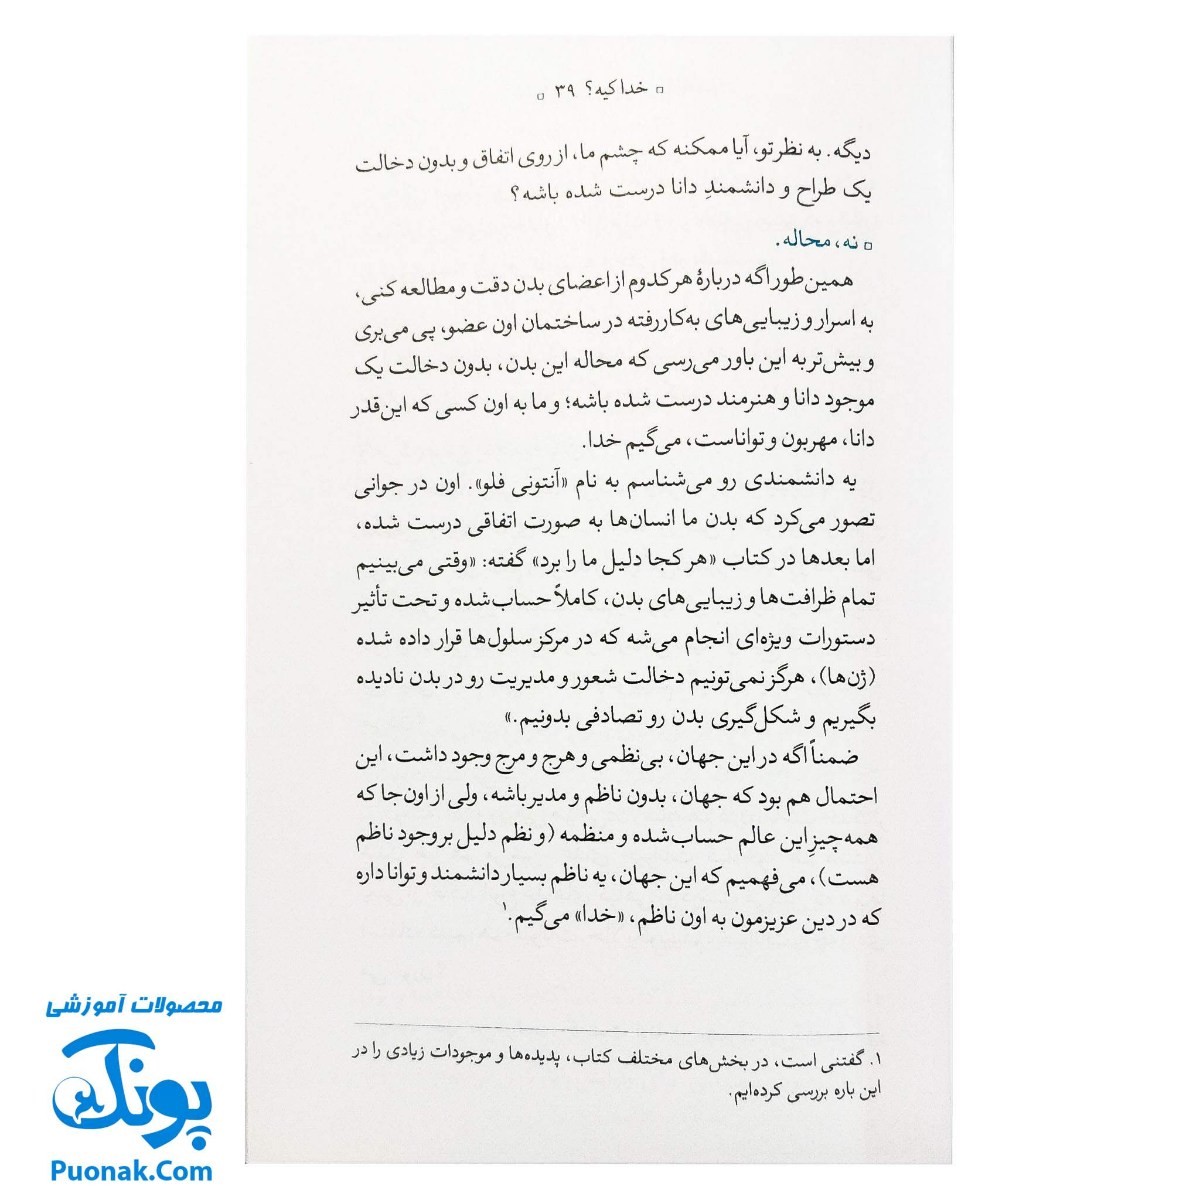 ▫ خدا کیه؟ ۳۹ ▫
دیگه. به نظر تو، آیا ممکنه که چشم ما، از روی اتفاق و بدون دخالت
یک طراح و دانشمندِ دانا درست شده باشه؟
▫ نه، محاله.
همین‌طور اگه دربارهٔ هر کدوم از اعضای بدن دقت و مطالعه کنی،
به اسرار و زیبایی‌های به‌کاررفته در ساختمان اون عضو، پی می‌بری
و بیش‌تر به این باور می‌رسی که محاله این بدن، بدون دخالت یک
موجود دانا و هنرمند درست شده باشه؛ و ما به اون کسی که این‌قدر
دانا، مهربون و تواناست، می‌گیم خدا.
یه دانشمندی رو می‌شناسم به نام «آنتونی فلو». اون در جوانی
تصور می‌کرد که بدن ما انسان‌ها به صورت اتفاقی درست شده،
اما بعدها در کتاب «هر کجا دلیل ما را برد» گفته: «وقتی می‌بینیم
تمام ظرافت‌ها و زیبایی‌های بدن، کاملاً حساب‌شده و تحت تأثیر
دستورات ویژه‌ای انجام می‌شه که در مرکز سلول‌ها قرار داده شده
(ژن‌ها)، هرگز نمی‌تونیم دخالت شعور و مدیریت رو در بدن نادیده
بگیریم و شکل‌گیری بدن رو تصادفی بدونیم.»
ضمناً اگه در این جهان، بی‌نظمی و هرج و مرج وجود داشت، این
احتمال هم بود که جهان، بدون ناظم و مدیر باشه، ولی از اون‌جا که
همه‌چیزِ این عالم حساب‌شده و منظمه (و نظم دلیل بر وجود ناظم
هست)، می‌فهمیم که این جهان، یه ناظم بسیار دانشمند و توانا داره
که در دین عزیزمون به اون ناظم، «خدا» می‌گیم.۱
۱. گفتنی است، در بخش‌های مختلف کتاب، پدیده‌ها و موجودات زیادی را در
این باره بررسی کرده‌ایم.
محصولات آموزشی
پونک
Puonak.Com